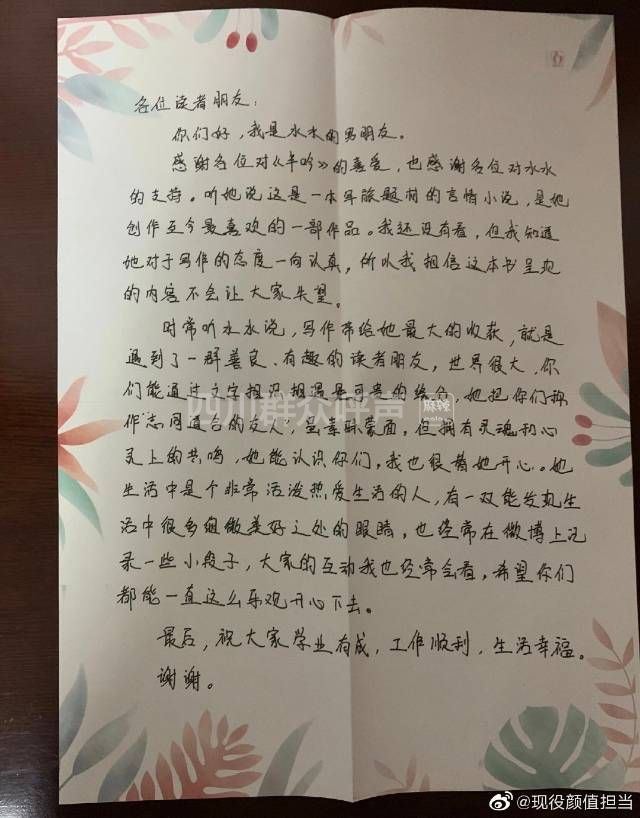 各位读者朋友：
你们好，我是水水的男朋友。
感谢各位对《半吟》的喜爱，也感谢各位对水水
的支持。听她说这是一本军旅题材的言情小说，是她
创作至今最喜欢的一部作品。我还没有看，但我知道
她对于写作的态度一向认真，所以我相信这本书呈现
的内容不会让大家失望。
时常听水水说，写作带给她最大的收获，就是
遇到了一群善良、有趣的读者朋友，世界很大，你
们能通过文字相识相遇是可贵的缘分，她把你们称
作“志同道合的友人，虽素昧蒙面，但拥有灵魂和心
灵上的共鸣，她能认识你们，我也很替她开心。她
生活中是个非常活泼热爱生活的人，有一双能发现生
活中很多细微美好之处的眼睛，也经常在微博上记
录一些小段子，大家的互动我也经常会看，希望你们
都能一直这么乐观开心下去。
最后，祝大家学业有成，工作顺利，生活幸福。
谢谢。
四川群众呼声
麻辣
@现役颜值担当